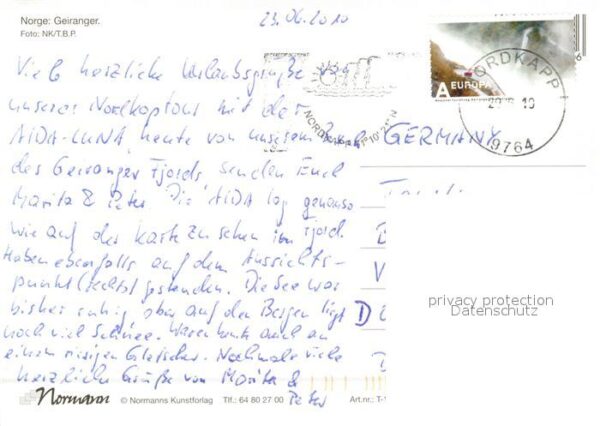 Norge: Geiranger.
Foto: NK/T.B.P.
23.06.2010
Viele herzliche Urlaubsgrüße von
unserer Nordkaptour mit der
AIDA-LUNA, heute von unserem
des Geiranger Fjords, senden Euch
Marita & Peter. Die AIDA lag genauso
wie auf der Karte zu sehen im Fjord.
Haben ebenfalls auf dem Aussichts-
punkt (rechts) gestanden. Die See war
bisher ruhig aber auf den Bergen liegt
noch viel Schnee. Waren heute auch an
einem riesigen Gletscher. Nochmals viele
herzliche Grüße von Marita &
Peter
A EUROPA
NORDKAPP
10
9764
GERMANY
D
privacy protection
Datenschutz
Normann
© Normanns Kunstforlag Tlf.: 64 80 27 00 Art.nr.: T-1